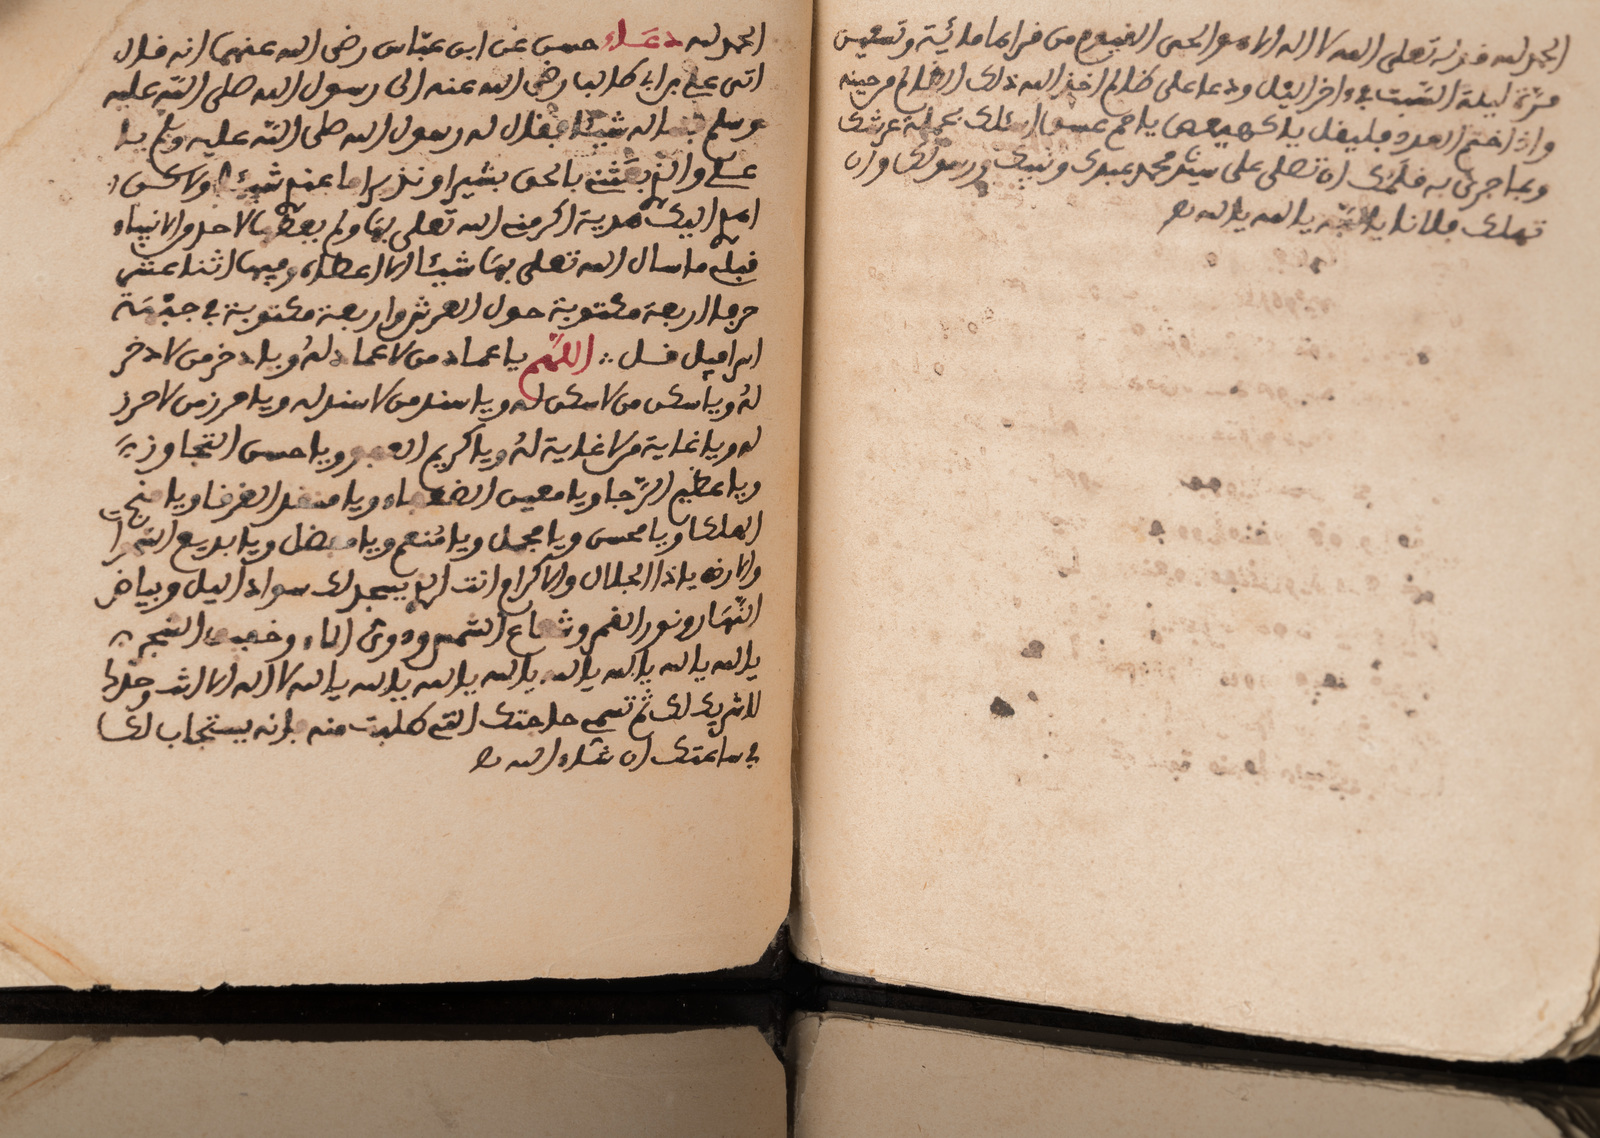 الحمد لله قوله تعلى الله لا اله الا هو الحي القيوم من قراها مائية وتسعين
مرة ليلة السبت في واخر اليل ودعا على ظالم اخذ الله ذلك الظالم من حينه
واذا ختم العدد فليقل يا كهيعص يا حم عسق اسئلك بحملة عرشك
وبما جرى به قلمك ان تصلى على سيدنا محمد عبدك ونبيك ورسولك وان
تهلك فلانا يا الله يا الله يا الله
الحمد لله دعاء حسن عن ابن عبّاس رضى الله عنهما انه قال
اتى علي بن ابي طالب رضي الله عنه الى رسول الله صلى الله عليه
وسلم يساله شيئا فقال له رسول الله صلى الله عليه وسلم يا
علي والذي بعثني بالحق بشيرا ونذيرا ما عندي شيئا ولاكن
اهدي اليك هدية اكرمني الله تعلى بها ولم يعطها لاحد من الانبياء
قبلي ما سال الله تعلى بها شيئا الا اعطاه وفيها اثنا عشر
حرفا اربعة مكتوبة حول العرش واربعة مكتوبة في جبهة
اسرافيل قل اللهم يا عماد من لا عماد له ويا ذخر من لا ذخر
له ويا سكن من لا سكن له ويا سند من لا سند له ويا حرز من لا حرز
له ويا غاية من لا غاية له ويا كريم العفو ويا حسن التجاوز
ويا عظيم الرّجا ويا معين الضعفاء ويا منقذ الغرقا ويا منجي
الهلكا ويا محسن ويا مجمل ويا منعم ويا مفضل ويا بديع السموات
والارض ياذا الجلال والاكرام انت الذي يسجد لك سواد اليل وبياض
النّهار ونور القمر وشعاع الشمس ودوي الماء وخفيف الشجر
يا الله يا الله يا الله يا الله يا الله يا الله يا الله يا الله لا اله الا انت وحدك
لا شريك لك ثم تسمي حاجتك التي طلبت منه فانه يستجاب لك
في ساعتك ان شاء الله